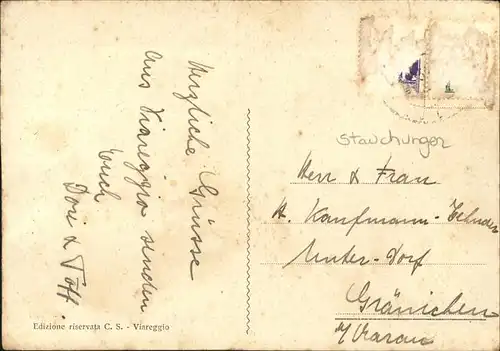 Herzliche Grüsse
aus Viareggio senden
Euch
Dori & Toff.
Edizione riservata C. S. - Viareggio
Stauchungen
Herr & Frau
A. Kaufmann-Zehnder
Unter-Dorf
Gränichen
b/Aarau